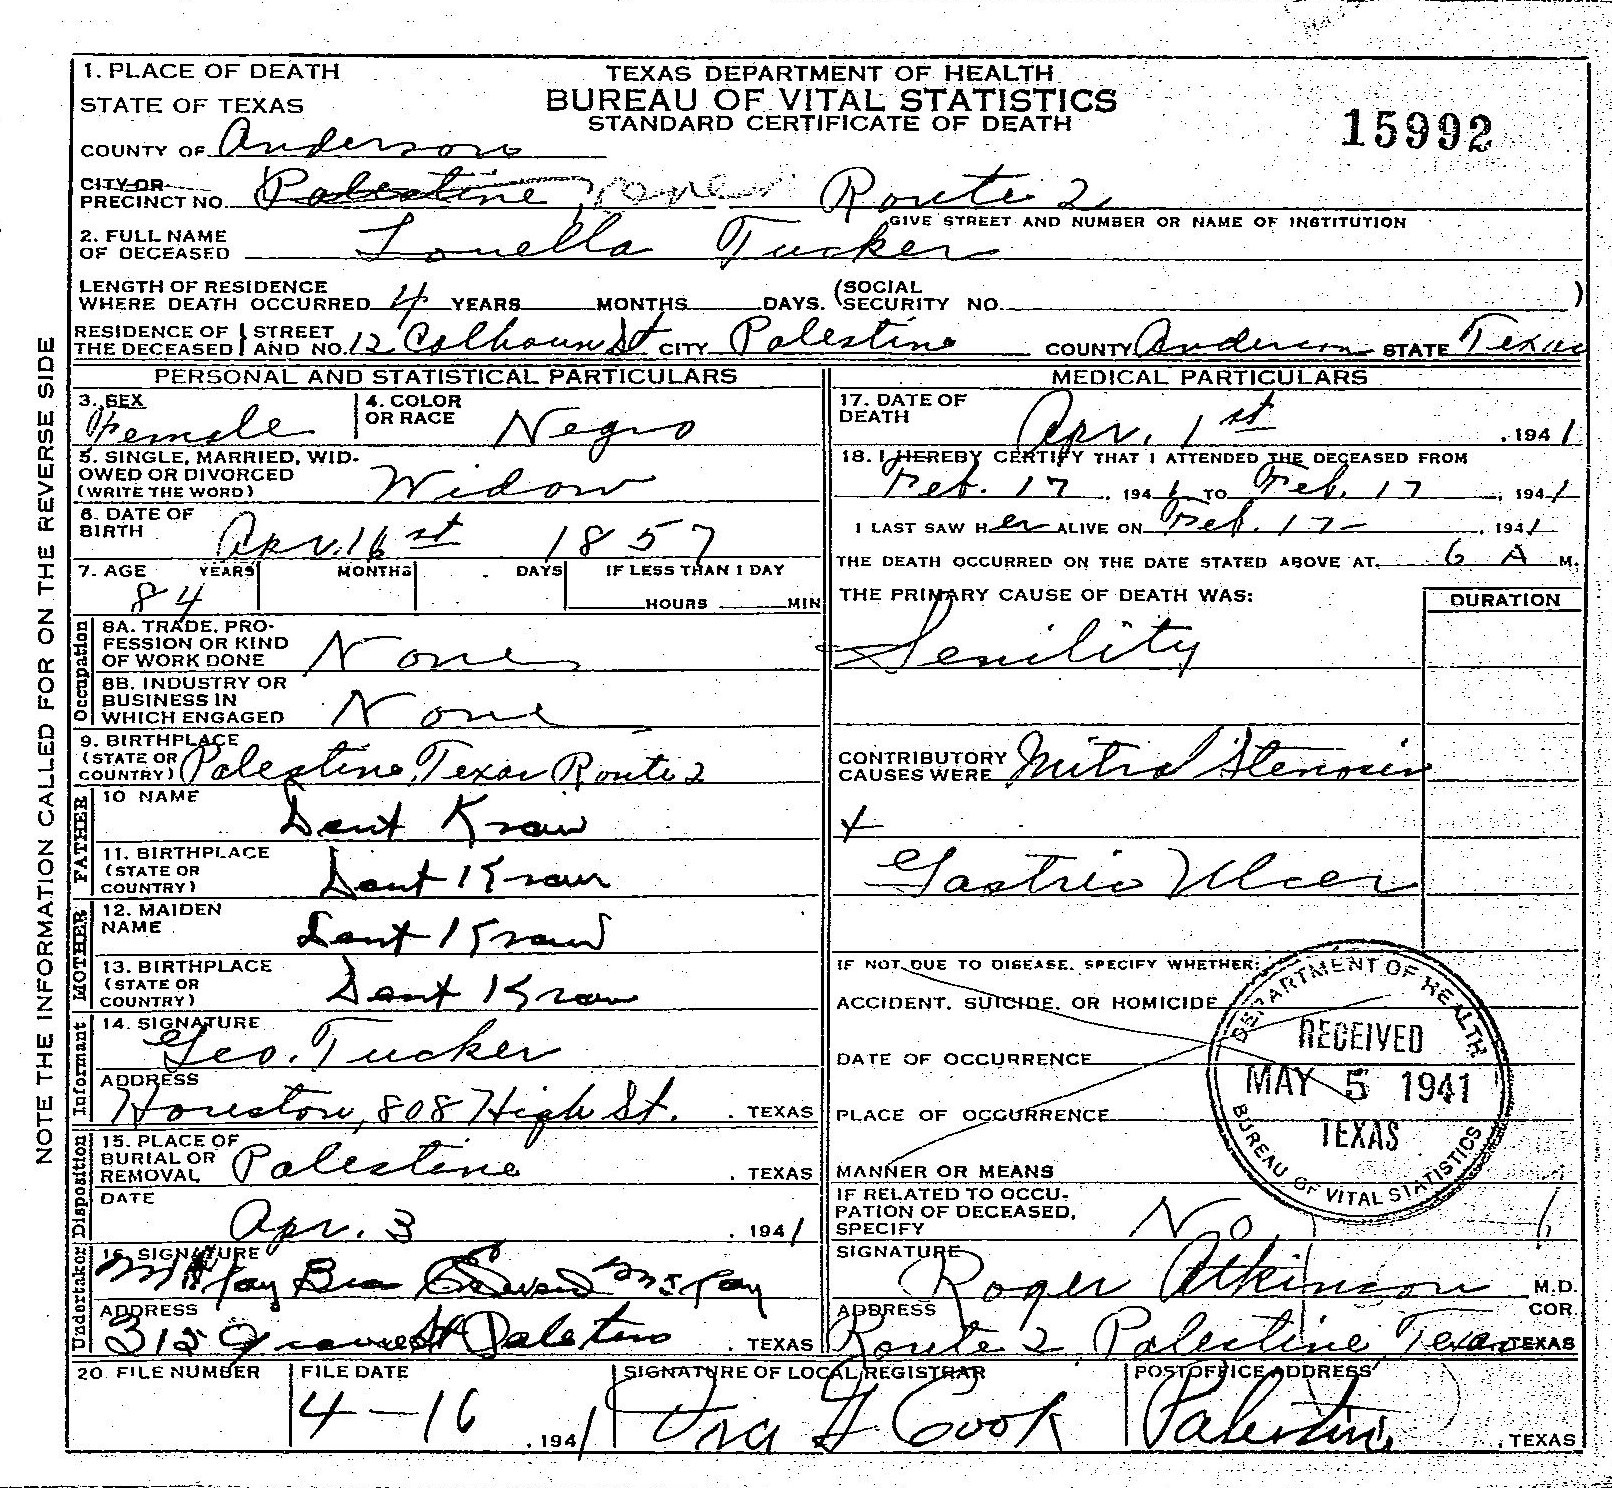 1. PLACE OF DEATH
STATE OF TEXAS
TEXAS DEPARTMENT OF HEALTH
BUREAU OF VITAL STATISTICS
STANDARD CERTIFICATE OF DEATH
15992
COUNTY OF Anderson
CITY OR PRECINCT NO. Palestine, Route 2
GIVE STREET AND NUMBER OR NAME OF INSTITUTION
2. FULL NAME OF DECEASED Louella Tucker
LENGTH OF RESIDENCE WHERE DEATH OCCURRED 4 YEARS MONTHS DAYS. (SOCIAL SECURITY NO. )
RESIDENCE OF THE DECEASED STREET AND NO. 12 Calhoun St CITY Palestine COUNTY Anderson STATE Texas
NOTE THE INFORMATION CALLED FOR ON THE REVERSE SIDE
PERSONAL AND STATISTICAL PARTICULARS
3. SEX Female
4. COLOR OR RACE Negro
5. SINGLE, MARRIED, WIDOWED OR DIVORCED (WRITE THE WORD) Widow
6. DATE OF BIRTH Apr. 16st 1857
7. AGE YEARS MONTHS DAYS IF LESS THAN 1 DAY
84 HOURS MIN
Occupation
8A. TRADE, PROFESSION OR KIND OF WORK DONE None
8B. INDUSTRY OR BUSINESS IN WHICH ENGAGED None
9. BIRTHPLACE (STATE OR COUNTRY) Palestine, Texas Route 2
FATHER
10 NAME Dont Know
11. BIRTHPLACE (STATE OR COUNTRY) Dont Know
MOTHER
12. MAIDEN NAME Dont Know
13. BIRTHPLACE (STATE OR COUNTRY) Dont Know
Informant
14. SIGNATURE Geo. Tucker
ADDRESS Houston, 808 High St. . TEXAS
Disposition
15. PLACE OF BURIAL OR REMOVAL Palestine . TEXAS
DATE Apr. 3 . 1941
Undertaker
16. SIGNATURE
ADDRESS 315 Palestine . TEXAS
MEDICAL PARTICULARS
17. DATE OF DEATH Apr. 1st . 1941
18. I HEREBY CERTIFY THAT I ATTENDED THE DECEASED FROM
Feb. 17 . 1941 TO Feb. 17 . 1941
I LAST SAW Her ALIVE ON Feb. 17- . 1941
THE DEATH OCCURRED ON THE DATE STATED ABOVE AT 6 A M.
THE PRIMARY CAUSE OF DEATH WAS: DURATION
Senility
CONTRIBUTORY CAUSES WERE Mitral Stenosis
+
Gastric Ulcer
IF NOT DUE TO DISEASE, SPECIFY WHETHER:
ACCIDENT, SUICIDE, OR HOMICIDE
DATE OF OCCURRENCE
PLACE OF OCCURRENCE
MANNER OR MEANS
DEPARTMENT OF HEALTH
RECEIVED
MAY 5 1941
TEXAS
BUREAU OF VITAL STATISTICS
IF RELATED TO OCCUPATION OF DECEASED, SPECIFY No
SIGNATURE Roger Atkinson M.D.
COR.
ADDRESS Route 2, Palestine, Texas TEXAS
20 FILE NUMBER
FILE DATE 4-16 . 1941
SIGNATURE OF LOCAL REGISTRAR Ira G Cook
POSTOFFICE ADDRESS Palestine . TEXAS